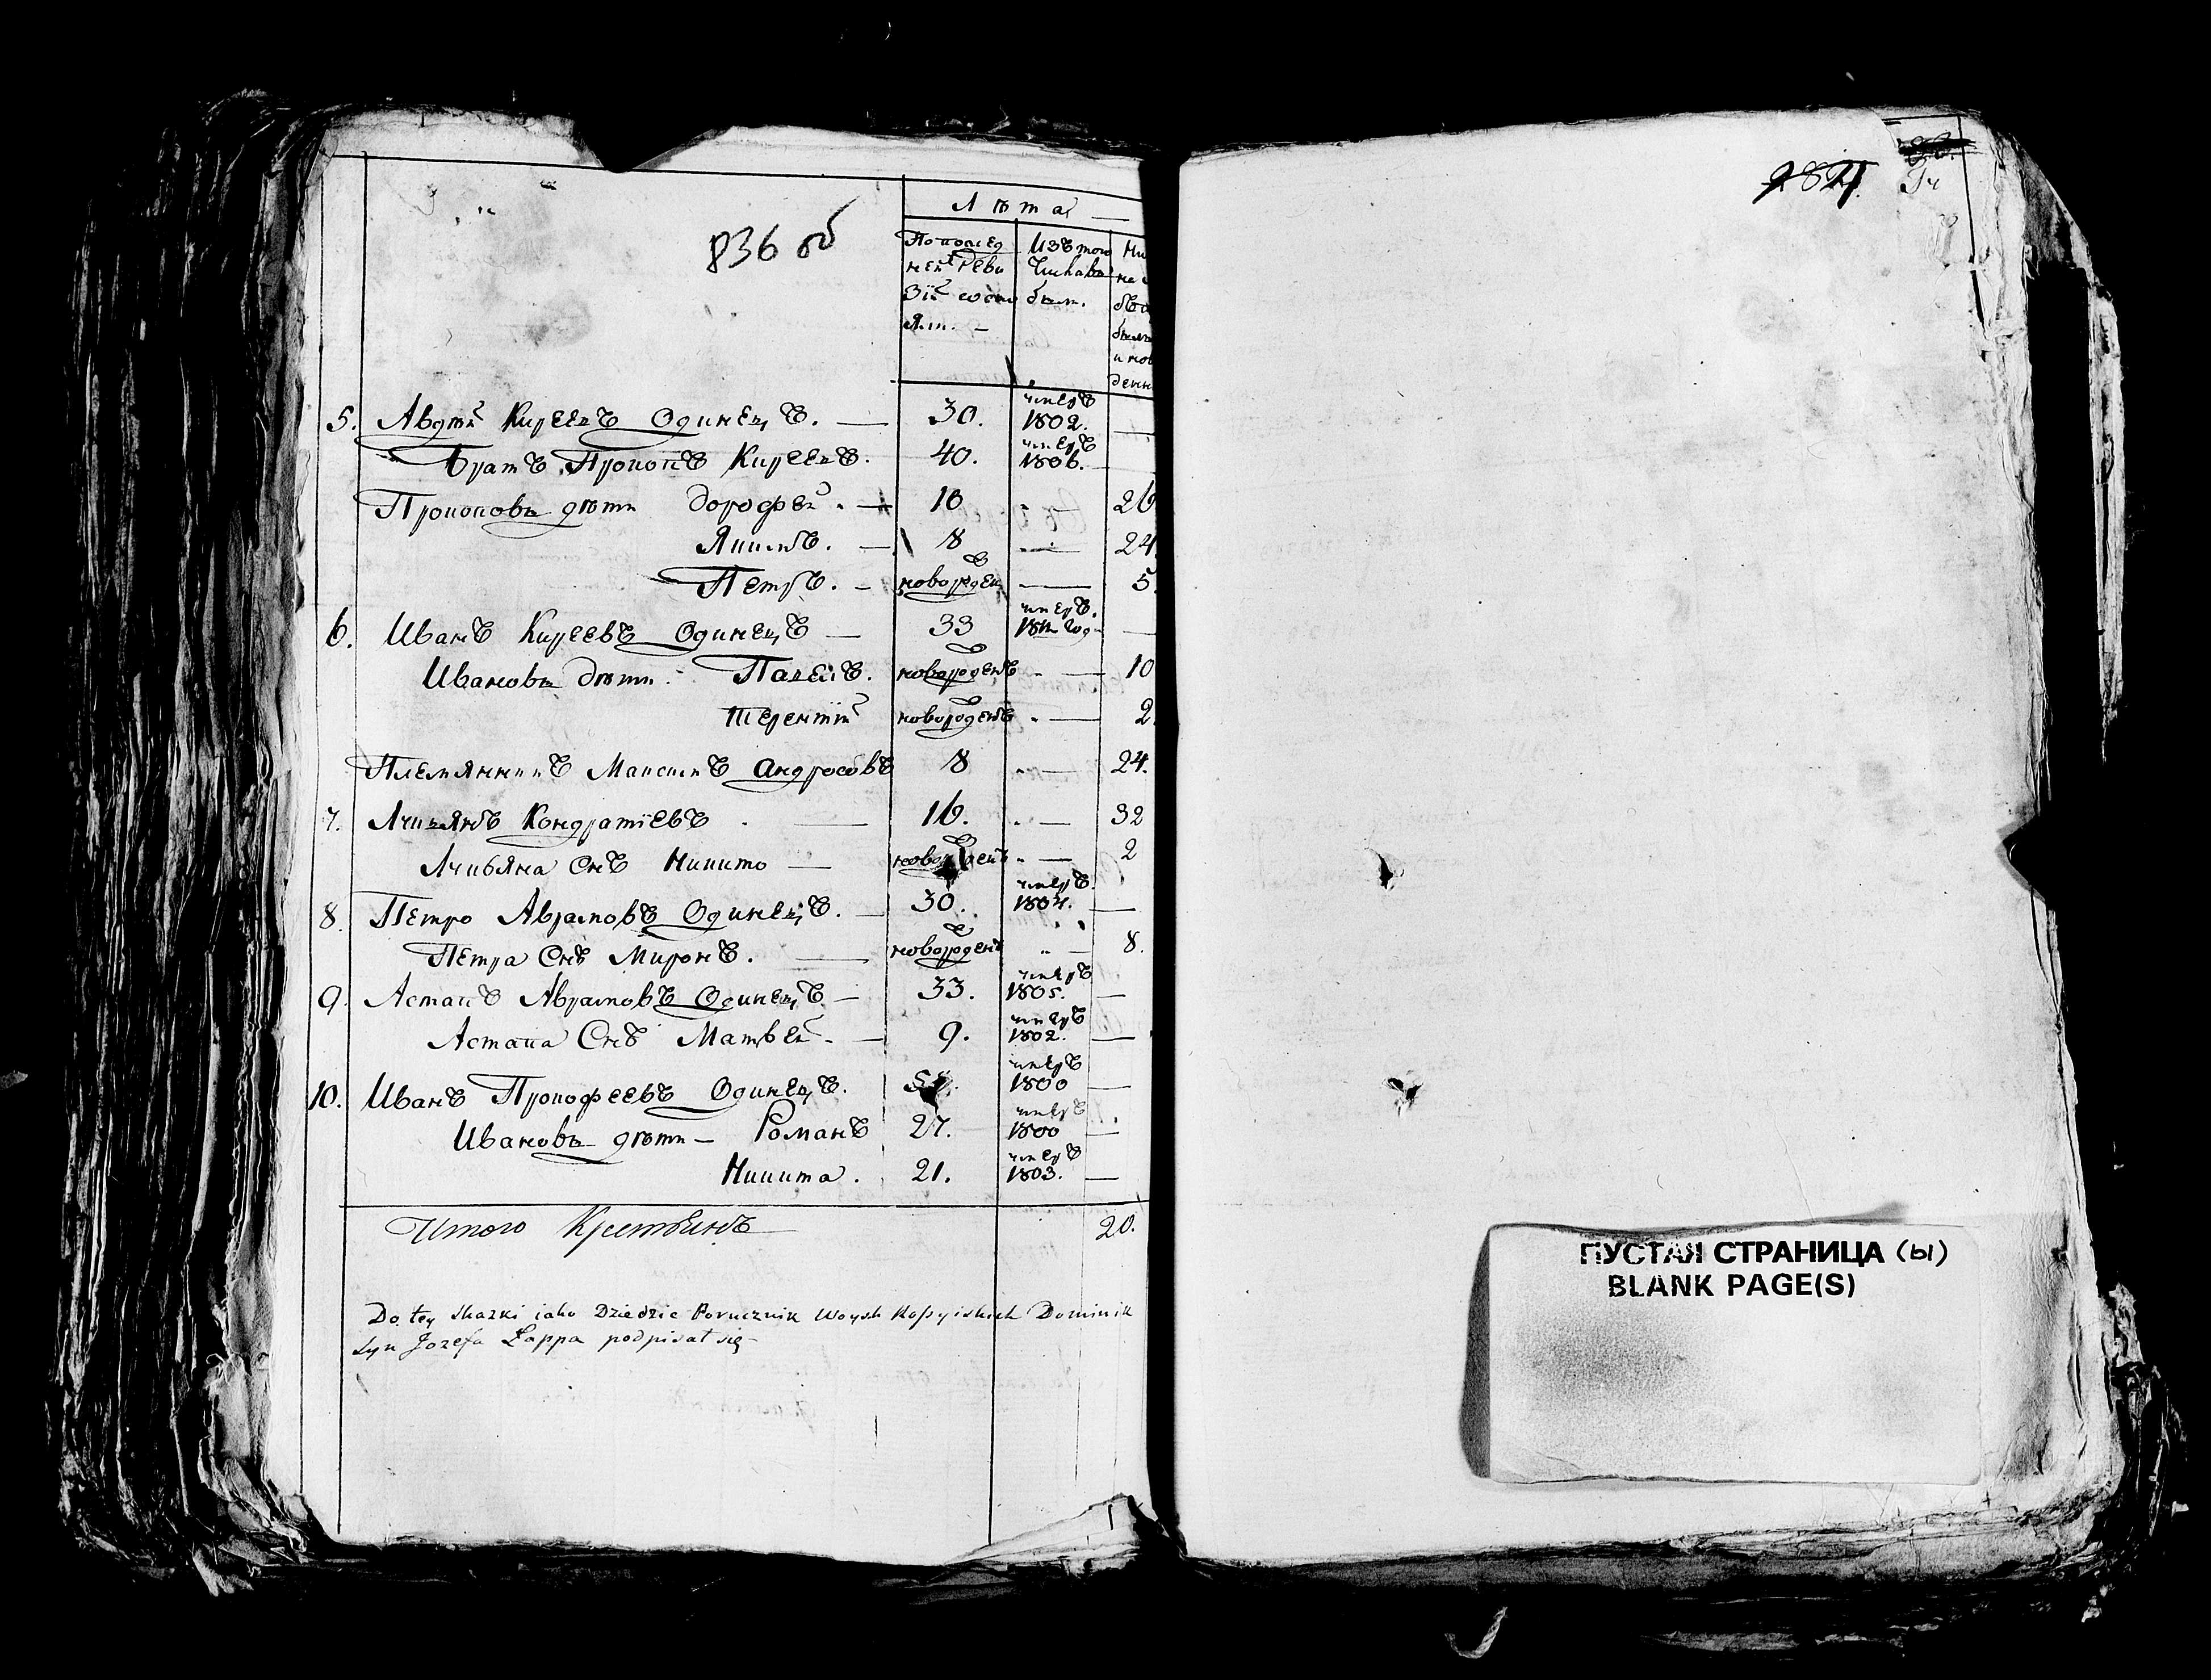 836 об
Лѣта
По послед Изъ того Ни
ней Реви Числа на
зїи состо был.
ял. быт
и нов
денн
5. Авдѣй Киреевъ Одинецъ. 30. умеръ 1802.
Братъ Прокопъ Киреевъ. 40. умеръ 1806.
Прокоповы дѣти Дорофей. 10 26
Якимъ. 8 24.
Петръ. новорожден 5.
6. Иванъ Киреевъ Одинецъ 33 умеръ. 1811 год
Ивановы дѣти. новорожденъ 10
Терентїй новорожденъ 2
Племянникъ Максимъ Андросовъ 8 24.
7. Кондратїевъ 16. 32
Снъ Никита новорожденъ 2
8. Петро Аврамовъ Одинецъ. 30. умеръ. 1804.
Петра Снъ Миронъ. новорожденъ 8.
9. Астапъ Аврамовъ Одинецъ 33. умеръ 1805.
Астапа Снъ Матвей. 9. умеръ 1802.
10. Иванъ Прокофеевъ Одинецъ. умеръ 1800
Ивановы дѣти Романъ 27. умеръ 1800
Никита. 21. умеръ 1803.
Итого Крестьянъ 20.
Do tey skazki iako Dziedzic Porucznik Woysk Rossyiskich Dominik
Syn Jozefa Łappa podpisał się
ПУСТАЯ СТРАНИЦА (Ы)
BLANK PAGE(S)